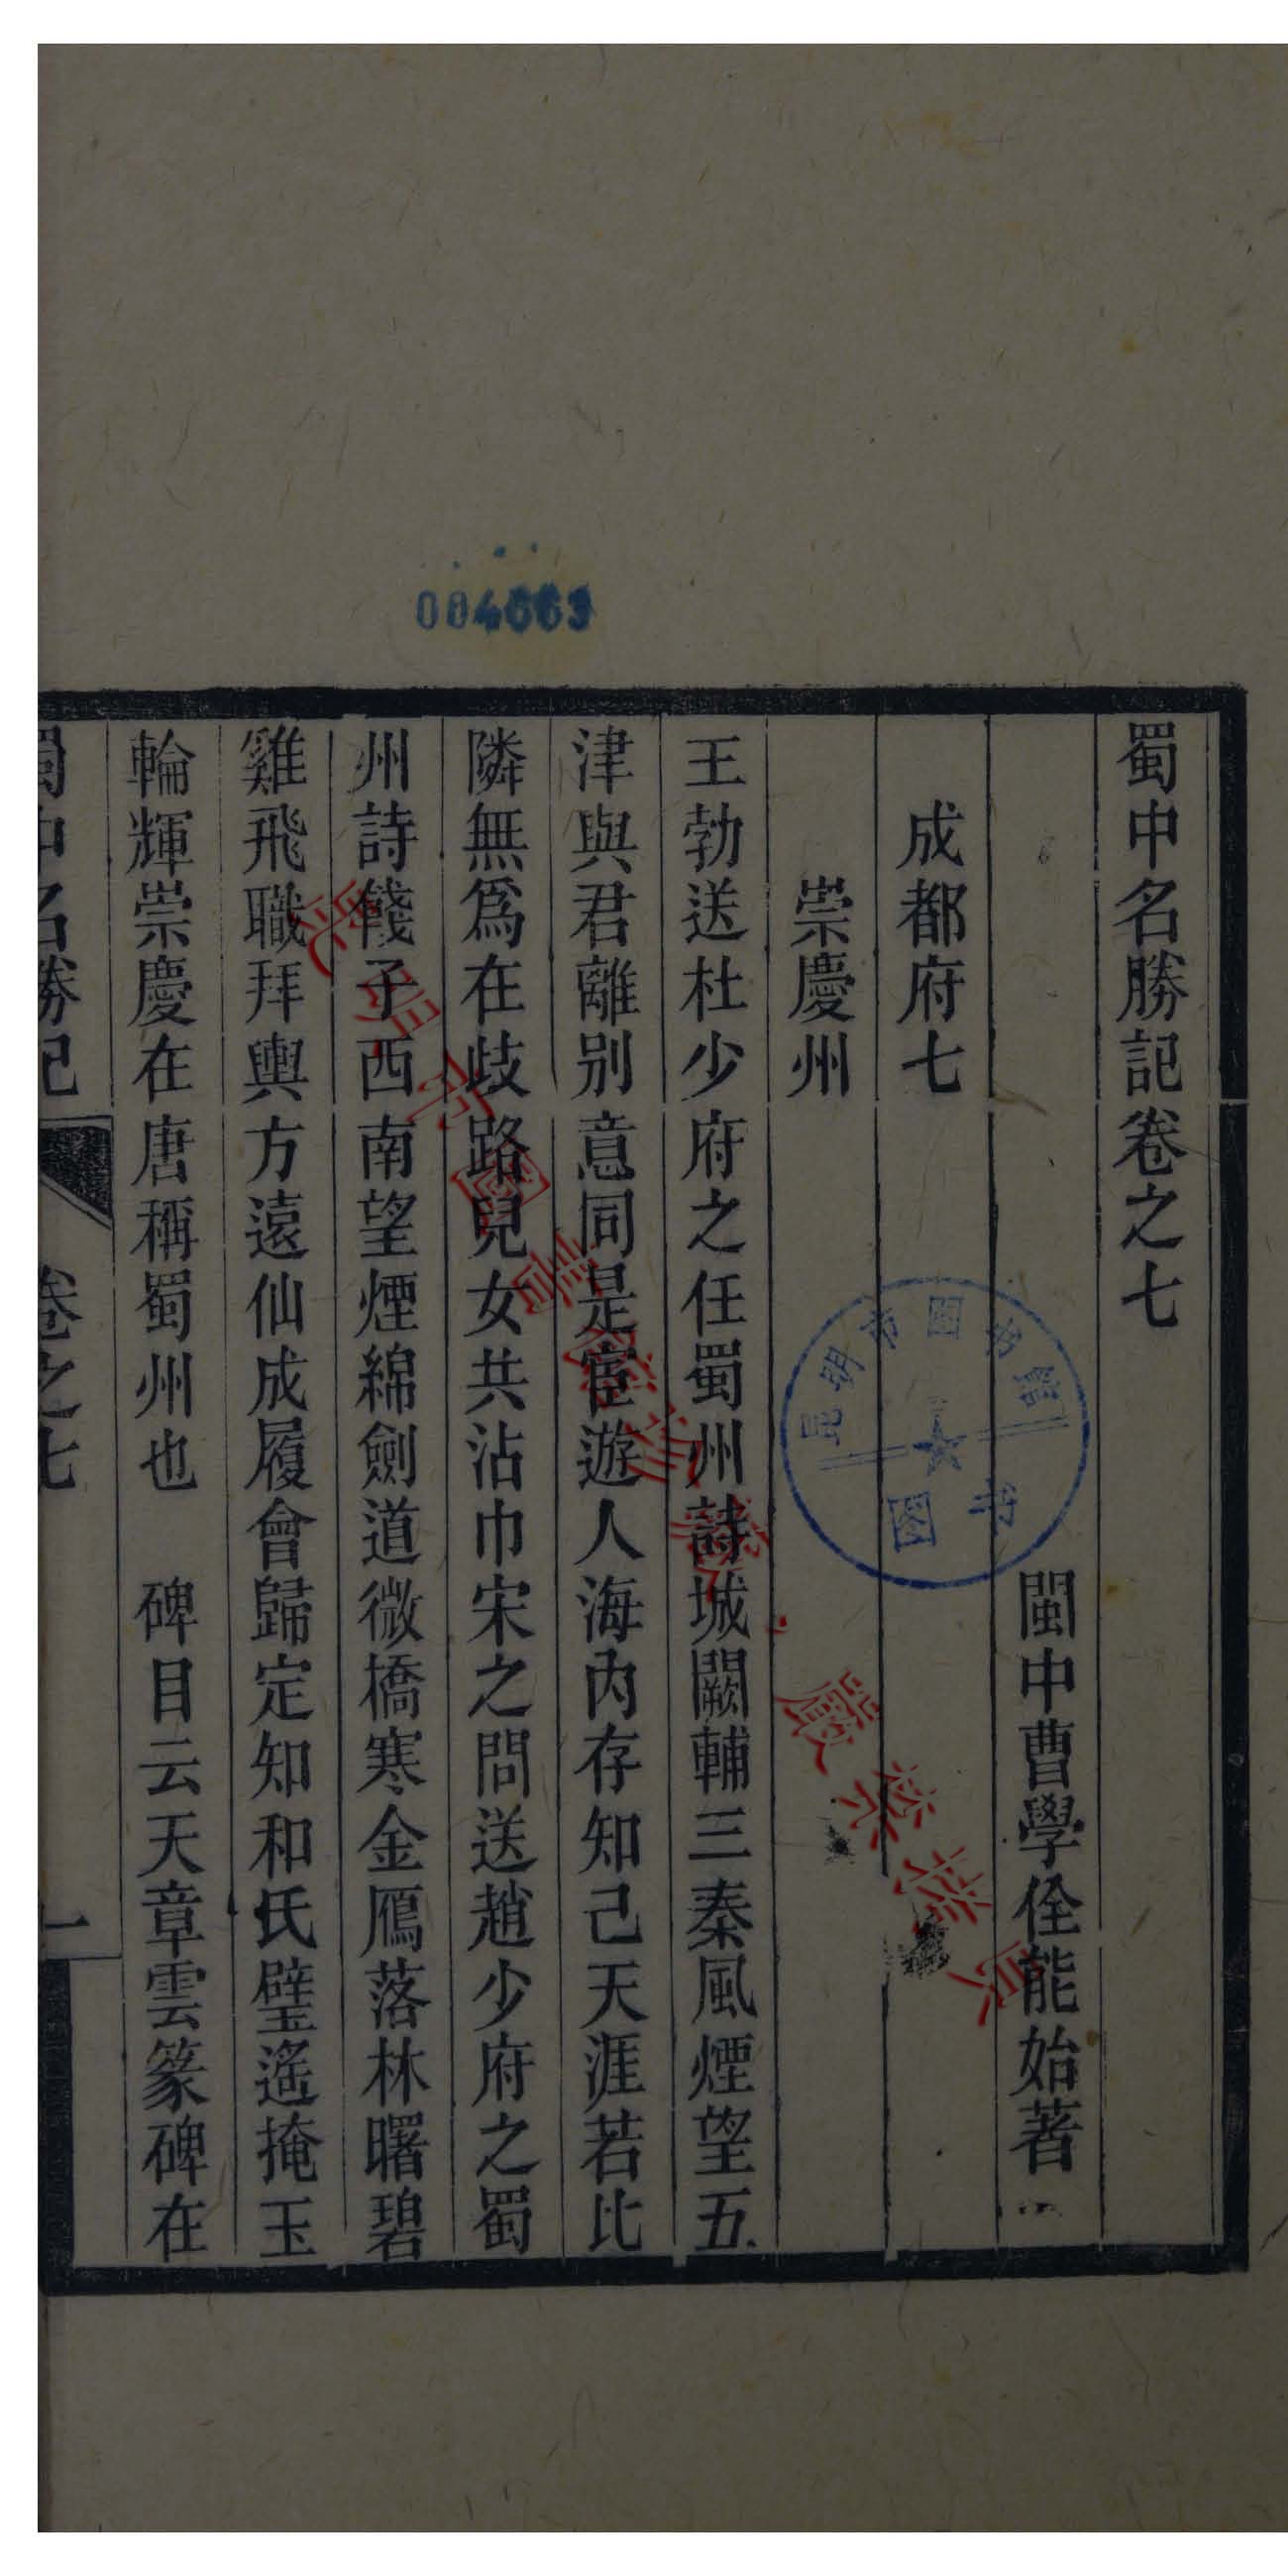 蜀中名勝記卷之七
閩中曹學佺能始著
成都府七
崇慶州
王勃送杜少府之任蜀州詩城闕輔三秦風煙望五
津與君離別意同是宦遊人海內存知己天涯若比
隣無爲在歧路兒女共沾巾宋之問送趙少府之蜀
州詩餞子西南望煙綿劍道微橋寒金鴈落林曙碧
雞飛職拜輿方遠仙成履會歸定知和氏璧遙掩玉
輪輝崇慶在唐稱蜀州也 碑目云天章雲篆碑在
蜀中名勝記 卷之七 一
004663
昆明市图书馆
图书
昆明市圖書館珍藏,嚴禁擴頁